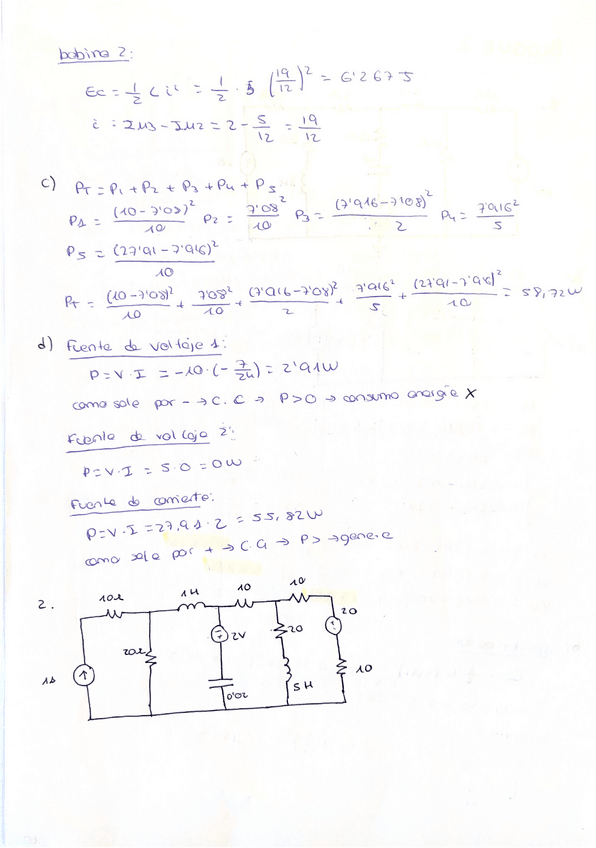 bobina 2:
Ec = 1/2 L i² = 1/2 · 5 (19/12)² = 6'267 J
i = IM3 - IM2 = 2 - 5/12 = 19/12
c) PT = P1 + P2 + P3 + P4 + P5
P1 = (10 - 7'08)²/10 P2 = 7'08²/10 P3 = (7'916 - 7'08)²/2 P4 = 7'916²/5
P5 = (27'91 - 7'916)²/10
PT = (10 - 7'08)²/10 + 7'08²/10 + (7'916 - 7'08)²/2 + 7'916²/5 + (27'91 - 7'916)²/10 = 58,72W
d) Fuente de voltaje 1:
P = V · I = -10 · (- 7/24) = 2'91W
como sale por - → C.C → P>0 → consume energie X
Fuente de voltaje 2:
P = V · I = 5 · 0 = 0W
Fuente de corriente:
P = V · I = 27,91 · 2 = 55,82W
como sale por + → C.G → P> → genere
2.
10Ω 1H 10 10
20
20Ω 2V 20
1A 10
0'02 5H